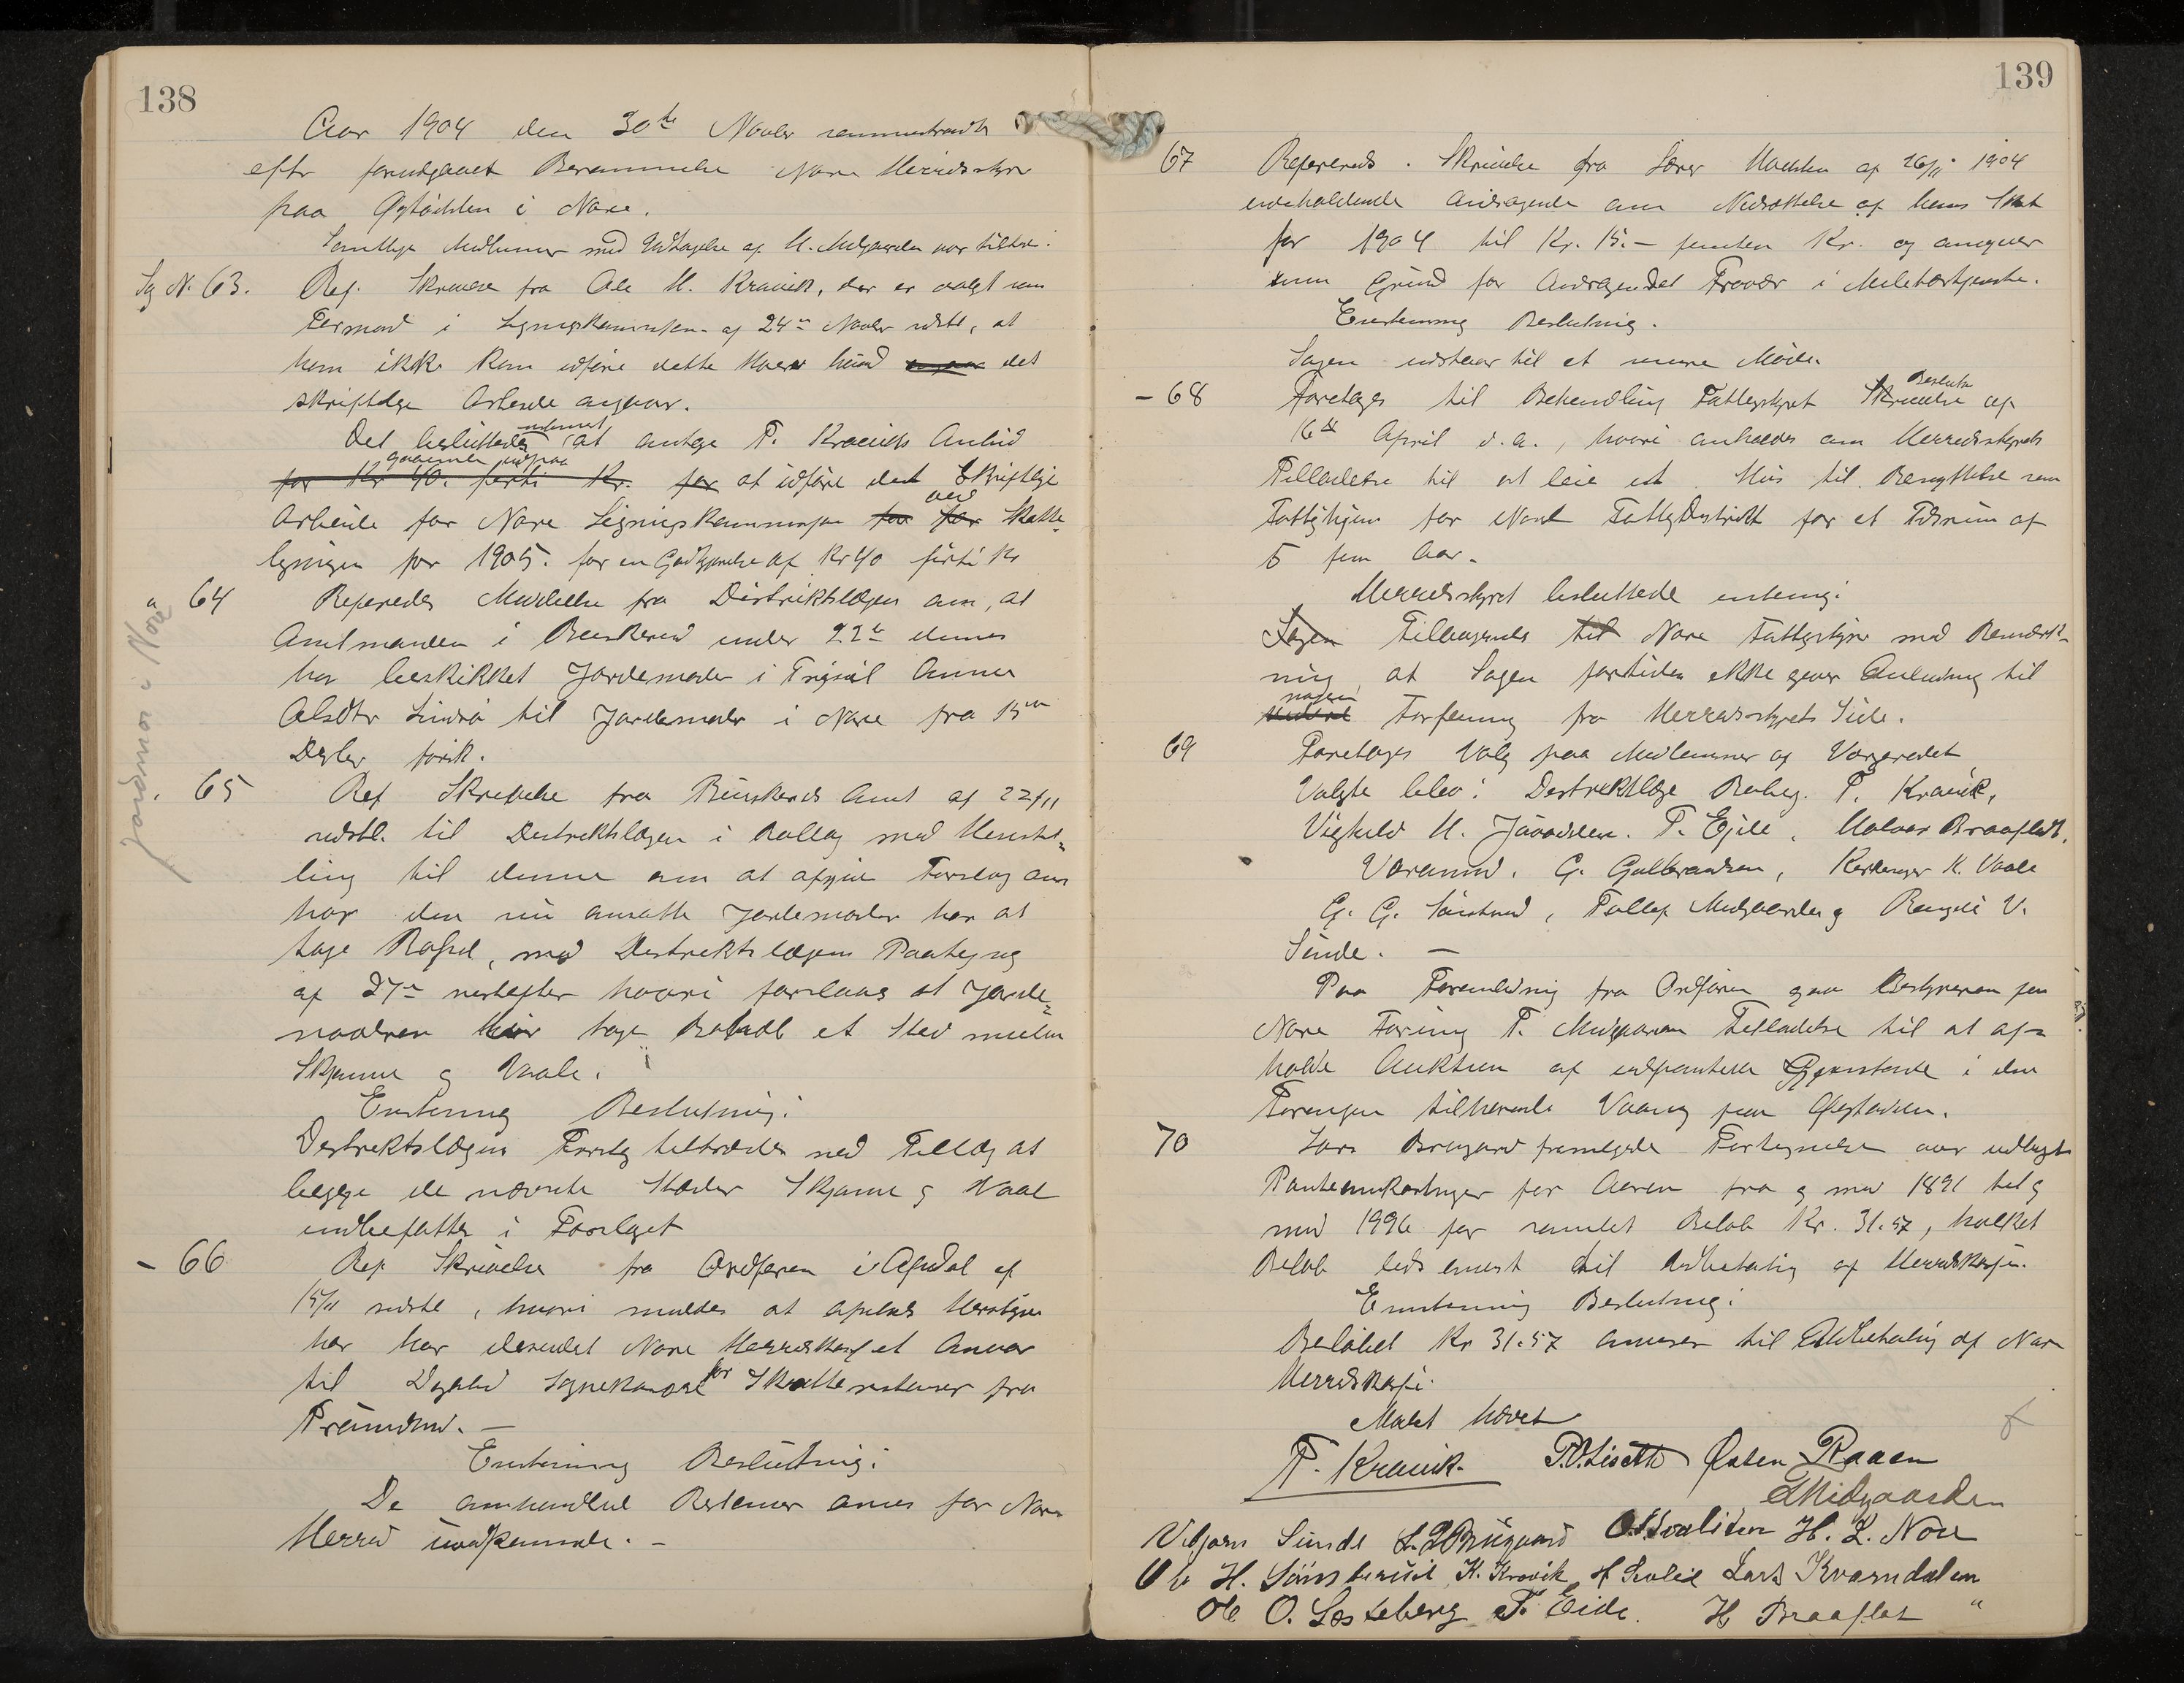 138
Aar 1904 den 30te Novbr sammentraadte
efter forudgaaet Berammelse Nore Herredsstyre
paa Øygården i Nore.
Samtlige Medlemmer med Undtagelse af H. Midgaarden var tilstede.
Sag No 63. Ref. Skrivelse fra Ole H. Kravik, der er valgt som
Formand i Ligningskommissionen af 24de Novbr sidstl, at
han ikke kan udføre dette Hverv hvad det
skriftlige Arbeide angaar.
Det besluttedes at antage T. Kraviks Anbud
gaaende ud paa
for Kr 40. førti Kr. for at udføre det Skriftlige
Arbeide for Nore Ligningskommission for for ved Skatte-
ligningen for 1905. for en Godtgjørelse af Kr 40 førti Kr
" 64 Referedes Meddelelse fra Distriktslægen om, at
Amtmanden i Buskerud under 22de dennes
har beskikket Jordemoder i Anna
Olsdtr til Jordemoder i Nore fra 15de
Decbr førstk.
Jordmor i Nore
" 65 Ref Skrivelse fra Buskeruds Amt af 22/11
sidstl. til Distriktslægen i Rollag med Henstil-
ling til denne om at afgive Forslag om
hvor den nu ansatte Jordemoder har at
tage Bopæl, med Distriktslægens Paategning
af 27de næstefter hvori foreslaaes at Jorde-
moderen bør tage Bopæl et Sted mellem
Skjønne og Vaale.
Enstemmig Beslutning:
Distriktslægens Forslag tiltrædes med Tillæg at
begge de nævnte Steder Skjønne og Vaal
indbefattes i Forslaget
- 66 Ref Skrivelse fra Ordføreren i Opdal af
15/11 sidstl, hvori meldes at Opdals Herredsstyre
har har Nore Herredskasse et Ansvar
til Dagalid Sognekommune for Skatterestancer fra
Enstemmig Beslutning:
De omhandlede Restancer ansees for Nore
Herred uvedkommende. -
139
67 Refereredes Skrivelse fra Lærer af 26/11 1904
indeholdende Andragende om Nedsættelse af hans Skat
for 1904 til Kr. 15.- femten Kr. og angiver
som Grund for Andragendet Fravær i Militærtjeneste.
Enstemmig Beslutning.
Sagen udstaar til et senere Møde.
- 68 Foretages til Behandling Fattigstyret Skrivelse Beslutn af
16de April d.a., hvori anholdes om Herredsstyrets
Tilladelse til at leie et Hus til Benyttelse som
Fattighjem for Nore Fattigdistrikt for et Tidsrum af
5 fem Aar.
Herredsstyret besluttede enstemmig:
Sagen Tilbagesendes til Nore Fattigstyre med Bemærk-
ning, at Sagen fortiden ikke giver Anledning til
nogen
videre Forføining fra Herredsstyrets Side.
69 Foretages Valg paa Medlemmer af Vergeraadet
Valgte blev: Distriktslæge T. Kravik,
Vighild H. T. Eide, Halvor Braafladt,
Varamænd. G. Gulbrandsen, Kirkesanger K. Vaale
G. G. Tollef Midgaarden og V.
Sunde. -
Paa Foranledning fra Ordføreren gav Bestyreren for
Nore Forening T. Midgaarden Tilladelse til at af-
holde Auktion af udpantede Gjenstande i den
Foreningen tilhørende Vaaning paa Øygaarden.
70 Lars Brugaard fremlagde Fortegnelse over udlagte
Panteomkostninger for Aarene fra og med 1891 til og
med 1996 for samlet Beløb Kr. 31.57, hvilket
Beløb til Udbetaling af Herredskassen.
Enstemmig Beslutning:
Beløbet Kr 31.57 anvises til Udbetaling af Nore
Herredskasse.
Mødet hævet
T. Kravik. Østen Raaen
Midgaarden
Vebjørn Sunde L. Brugaard H. L. Nore
Ole H. Sønsterud K. Kravik Lars Kvarndalen
Ole O. Løsteberg T. Eide. H Braaflat "